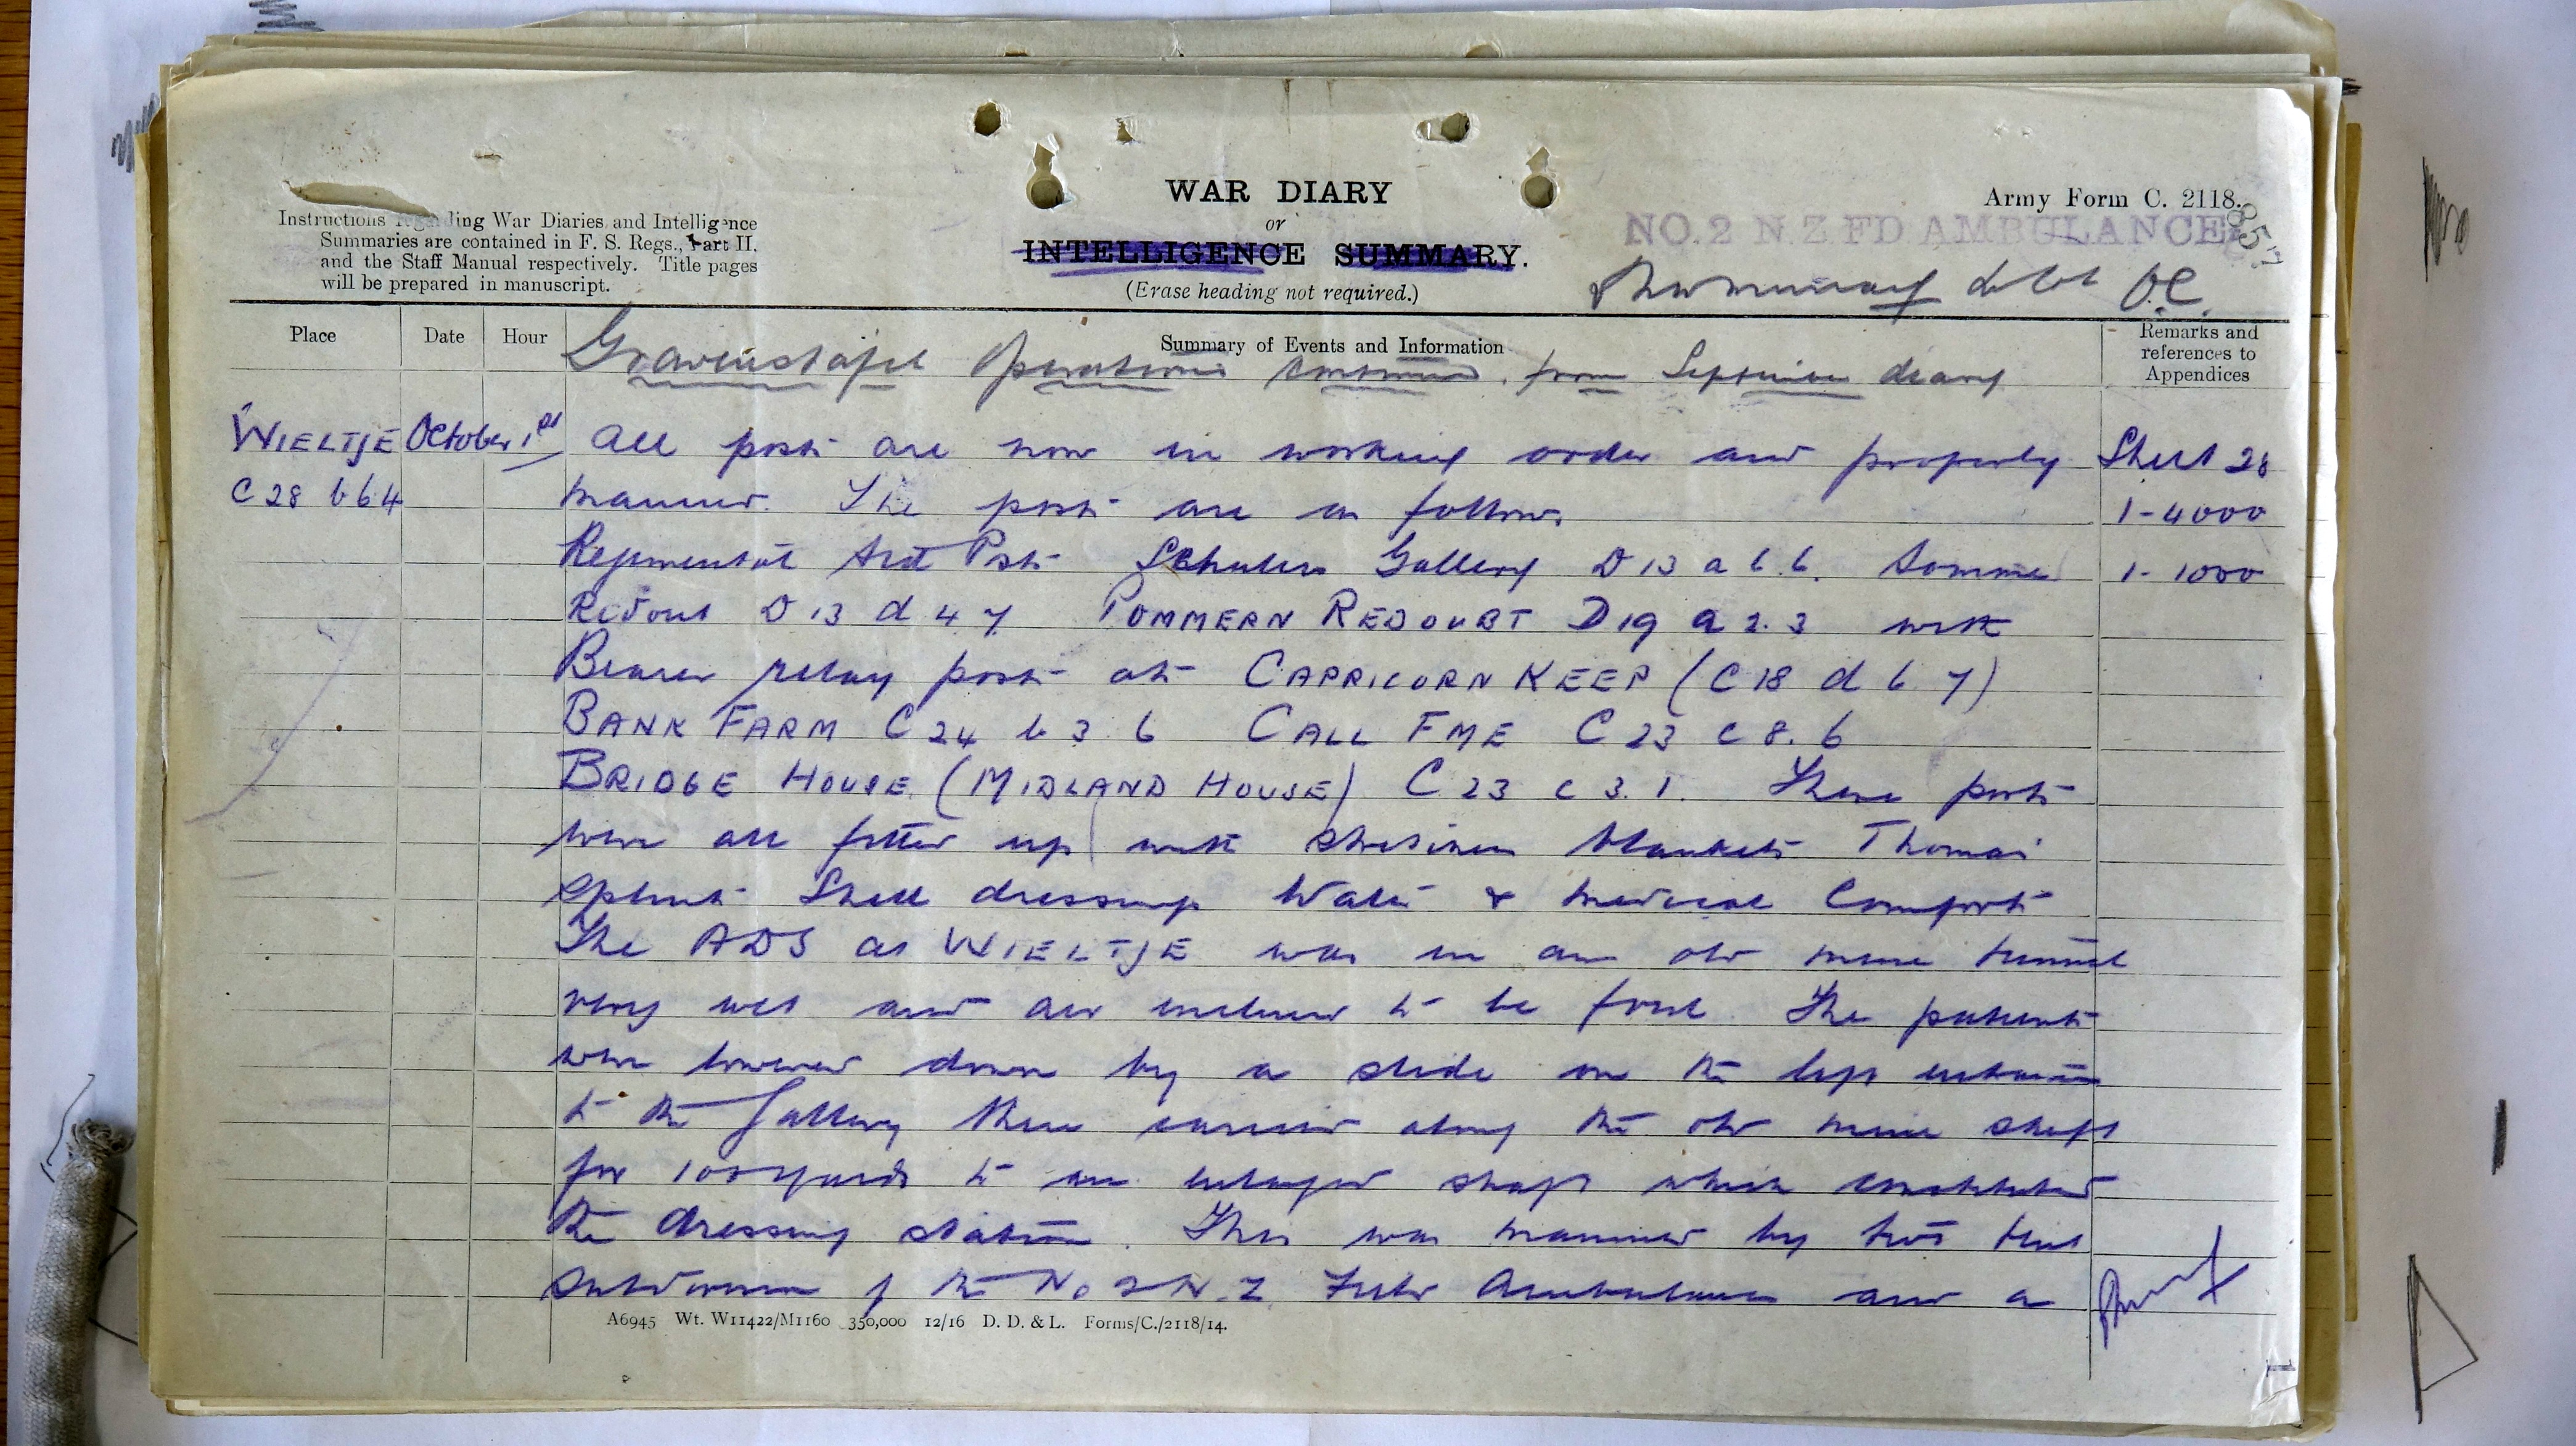 WAR DIARY
or
INTELLIGENCE SUMMARY.
(Erase heading not required.)
Instructions regarding War Diaries and Intelligence
Summaries are contained in F. S. Regs., Part II.
and the Staff Manual respectively. Title pages
will be prepared in manuscript.
Army Form C. 2118.
NO. 2 N.Z FD AMBULANCE
Lt Col OC.
Place Date Hour Summary of Events and Information Remarks and
references to
Appendices
Gravenstafel Operations continued from September diary
WIELTJE October 1st All posts are now in working order and properly Sheet 28
C 28 b 6 4 manned. The posts are as follows 1-4000
Regimental Aid Posts Schuler Gallery D 13 a 6.6. Somme 1-1000
Redout D 13 d 4 7 POMMERN REDOUBT D 19 a 2.3 with
Bearer relay posts at CAPRICORN KEEP (C 18 d 6 7)
BANK FARM C 24 b 3 6 CALL FME C 23 c 8.6
BRIDGE HOUSE (MIDLAND HOUSE) C 23 c 3.1. These posts
were all fitted up with stretchers blankets Thomas
splints Shell dressings Water & medical Comforts
The ADS at WIELTJE was in an old mine tunnel
very wet and air inclined to be foul. The patients
were lowered down by a slide on the left entrance
to the Gallery then carried along the old mine shaft
for 100 yards to an enlarged shaft which constituted
the dressing station. This was manned by two tent
subdivisions of the No 2 N.Z. Field Ambulance and a
A6945 Wt. W11422/M1160 350,000 12/16 D. D. & L. Forms/C./2118/14.